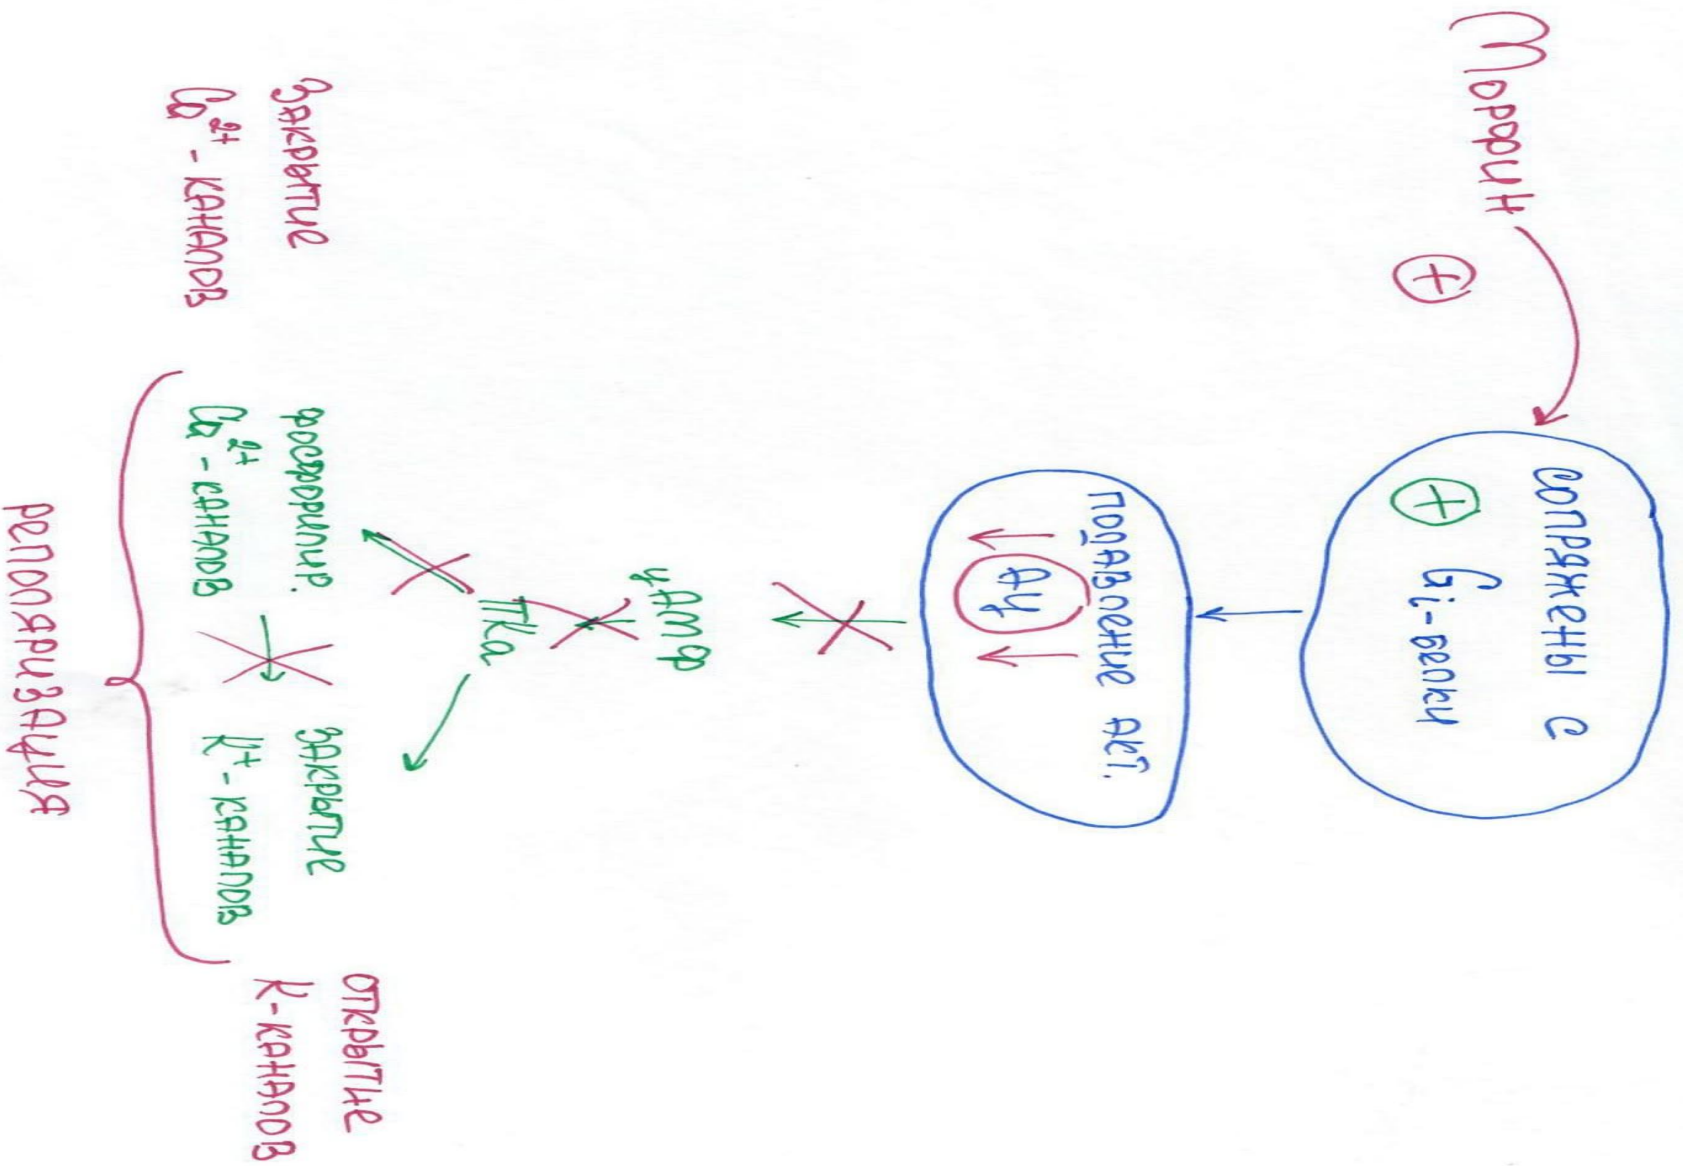 Морфин
+
сопряжены с
+ Gi-белки
подавление акт.
↓ АЦ ↓
цАМФ
ПКа
закрытие
Ca²⁺ - каналов
фосфорилир.
Ca²⁺ - каналов
закрытие
K⁺ - каналов
открытие
K - каналов
реполяризация